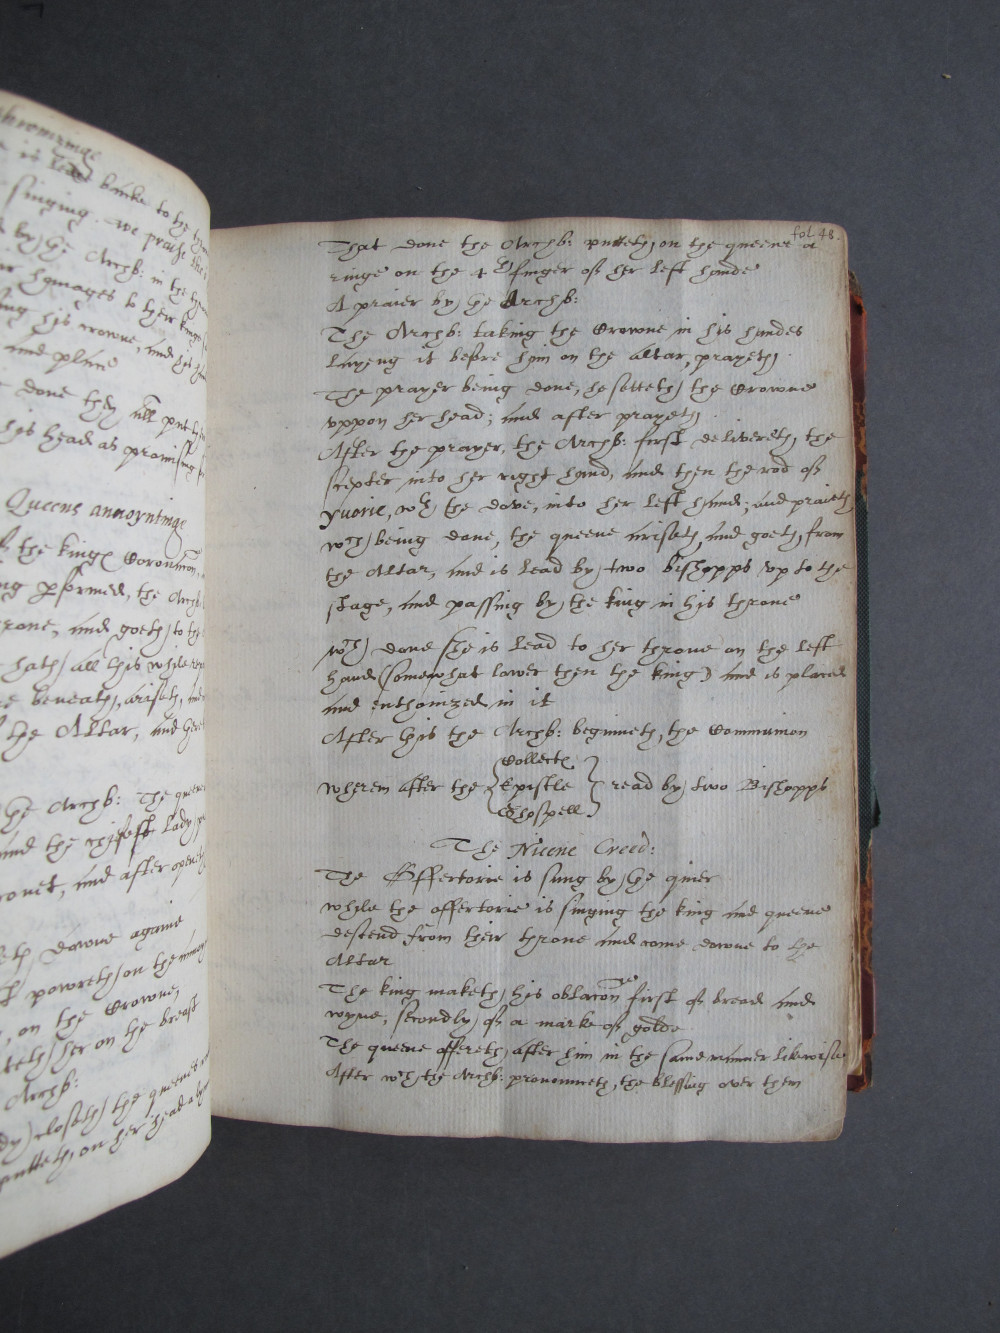 throninge
is lead backe to the
singing. we praise the
by the Archb: in the
homages to their kinge
his crowne, and his
and place
done they all put
his head as promising
Queens annoyntinge
the kings Coronacon,
performed, the Archb:
throne, and goeth to the
hath all this while
beneath, ariseth, and
the Altar, and here
the Archb: The queene
and the chifest Lady,
and after openeth
downe againe
powreth on the
on the Crowne,
her on the breast
Archb:
closeth the queenes
putteth on her head a
fol 48.
That done the Archb: putteth on the queene a
ringe on the 4th finger of her left hande
A praier by the Archb:
The Archb: taking the Crowne in his handes
layeng it before him on the altar, prayeth.
The prayer being done, he setteth the Crowne
vppon her head; and after prayeth
After the prayer, the Archb: first delivereth the
scepter into her right hand, and then the rod of
yvorie, wth the dove, into her left hand; and praieth
wch being done, the queene ariseth and goeth from
the Altar, and is lead by two bishopps vp to the
stage, and passing by the king in his throne
wch done she is lead to her throne on the left
hand (somewhat lower then the king) and is placed
and enthronized in it
After this the Archb: beginneth, the Communion
wherein after the { Collect Epistle Ghospell } read by two Bishopps
The Nicene Creed:
The Offertorie is sung by the quier
while the offertorie is singing the king and queene
descend from their throne and come downe to the
Altar
The king maketh his oblacon first of bread and
wyne, secondly of a marke of golde
The queene offereth after him in the same manner likewise
After wch the Archb: pronounceth, the blessing over them